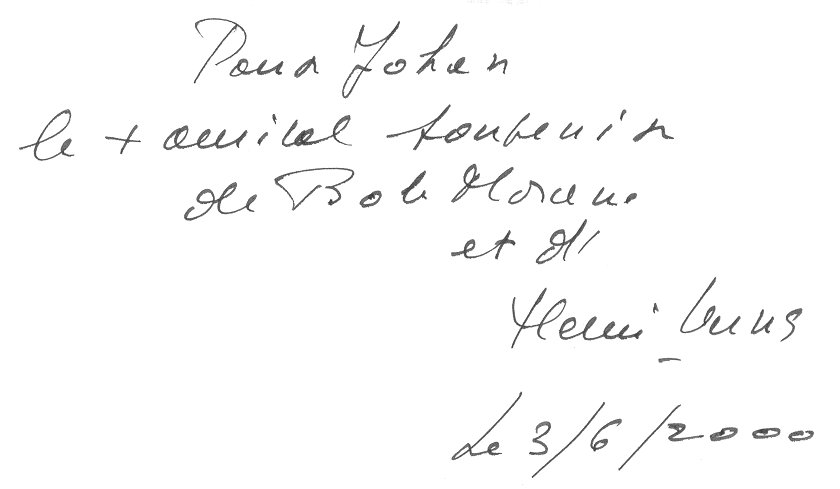 Pour Johan
le + amical souvenir
de Bob Morane
et d'
Henri Vernes
Le 3/6/2000